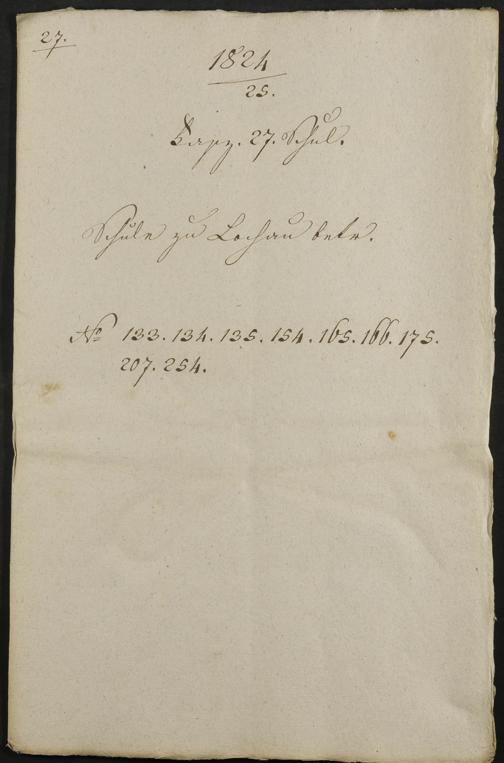 27.
1824
25.
Fasz. 27. Schul.
Schule zu Lochau betr.
No 133. 134. 135. 154. 165. 166. 175.
207. 254.